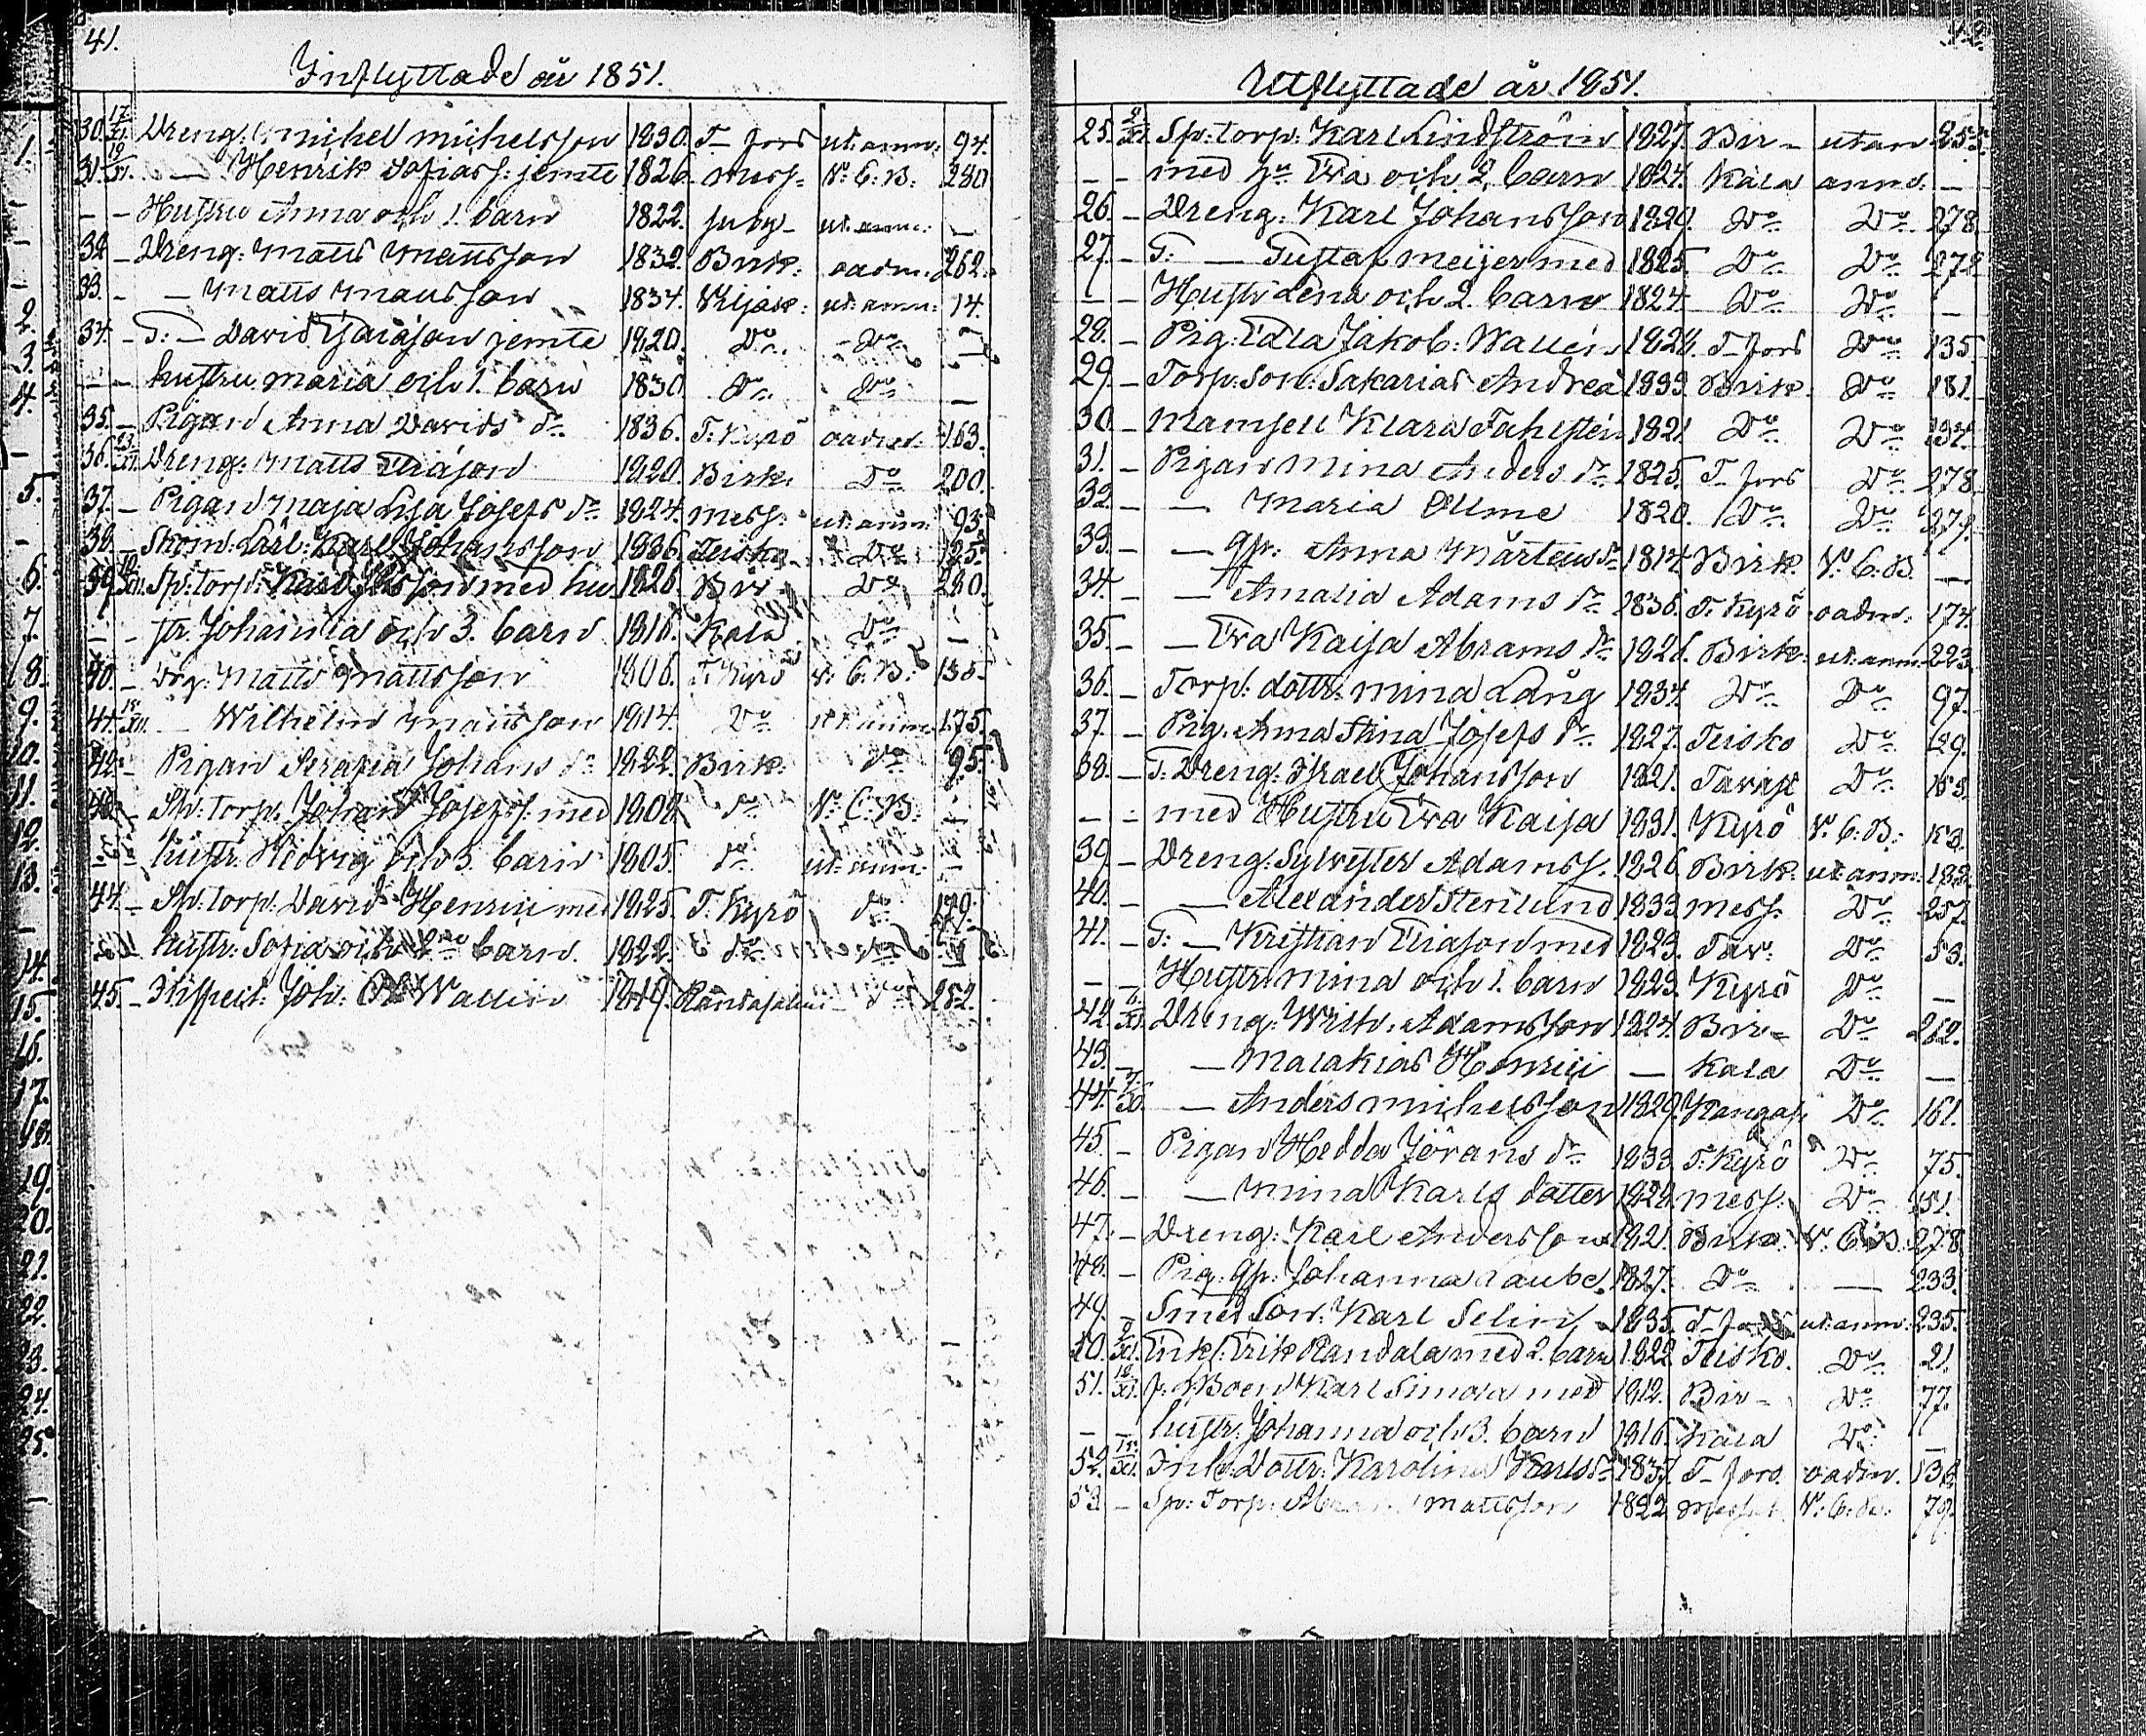 41.
Inflyttade år 1851.
30. 17/XI. Dreng: Michel Michelsson 1830. T-Jord ut. anm: 94.
31. 19/XI. — Henrik Sofiass: jemte 1826. Mess- N: C: B: 280
— — Hustru Anna och 1. barn 1822. ut. anm: —
32. — Dreng: Matts Mattsson 1832. Birk: oadm: 262.
33. — — Matts Mattsson 1834. ut. anm: 14.
34. — T: — David jemte 1820. Do Do —
— — hustru Maria och 1. barn 1830. do Do —
35. — Pigan Anna Davids dr 1836. T. Kyrö oadm: 163.
36. 23/XI. Dreng: Matts Eliasson 1820. Birk. Do 200.
37. — Pigan Maja Lisa Josefs dr 1824. Mess: ut. anm: 93.
38. — Karl Johansson 1836. Teisko Do 125.
39. XII. Sp: torp: med hu 1826. Bir- Do 280.
— — str. Johanna och 3. barn 1816. Kala Do —
40. — Drg: Matts Mattsson 1806. T. Kyrö N: C: B: 135.
41. 15/XII. — Wilhelm Mattsson 1814. Do ut. anm: 175.
42. — Pigan Serafia Johans dr 1822. Birk: do 95.
43. Sp: torp: Johan Josefs: med 1808. do N: C: B: —
— — hustr: Hedvig och 3. barn 1805. do ut. anm: —
44. — Sp: torp: David Henrici med 1825. T. Kyrö do 129.
hustr: Sofia och barn. 1822. do do
45. — Inspect: Joh: Wallin 1819. do 282.
42.
Utflyttade år 1851.
25. 2/XI. Sp: torp: Karl Lindström 1827. Bir- utan 255.
— — med hu Eva och 2. barn 1824. Kala anm. —
26. — Dreng: Karl Johansson 1829. Do Do 278.
27. — T: — Gustaf Meijer med 1825. Do Do 278
— — Hustr Lena och 2. barn 1824. Do Do —
28. — Pig: Edla Jakob: Wallén 1828. T-Jord Do 135.
29. — Torp: Son: Sakarias Andreä 1833. Birk. Do 181.
30. — Mamsell Klara Fahlstén 1821. Do Do 137.
31. — Pigan Mina Anders dr 1825. T-Jord Do 278.
32. — — Maria Ollme 1820. Do Do 279.
33. — — gft: Anna Mårtens dr 1814. Birk. N: C: B. —
34. — — Amalia Adams dr 1836. T. Kyrö oadm. 174.
35. — — Eva Kaija Abrams dr 1826. Birk: ut. anm. 223.
36. — Torp: dottr: Mina Lång 1834. Do Do 97.
37. — Pig. Anna Stina Josefs dr 1827. Teisko Do 129.
38. — T: Dreng: Israel Johansson 1821. Tavast Do 153.
— — med Hustru Eva Kaija 1831. Kyrö N: C: B: 153.
39. — Dreng: Sylvester Adamss. 1826. Birk. ut. anm: 182.
40. — — Alexander Stenlund 1833. Mess: Do 257.
41. — T: — Kristian Eliasson med 1823. Tav: Do 53.
— — Hustr: Mina och 1. barn 1823. Kyrö Do —
42. 6/XI. Dreng: Wilh: Adamsson 1824. Bir- Do 262.
43. — — Malakias Henrici — Kala Do —
44. 7/XI. — Anders Michelsson 1829. Kangas: Do 161.
45. — Pigan Hedda Jörans dr 1833. T. Kyrö Do 75.
46. — — Mina Karls dotter 1828. Mess: Do 151.
47. — Dreng: Karl Andersson 1821. Birk. N: C: B: 278.
48. — Pig. gft. Johanna Laube. 1827. Do — 233.
49. — Smed Son: Karl Selin 1835. T-Jord ut. anm. 235.
50. 9/XI. Enkl: Erik Randala med 2. barn 1822. Teisko. Do 21.
51. 12/XI. f. d. Boen Karl Simola med 1812. Bir- Do 77.
— — hustr: Johanna och 3. barn 1816. Kala Do —
52. 15/XI. Inh: Dottr: Karolina Karls dr 1837. T-Jord. oadm. 136.
53. — Sp: Torp: Mattsson 1822. N: C: B: 79.